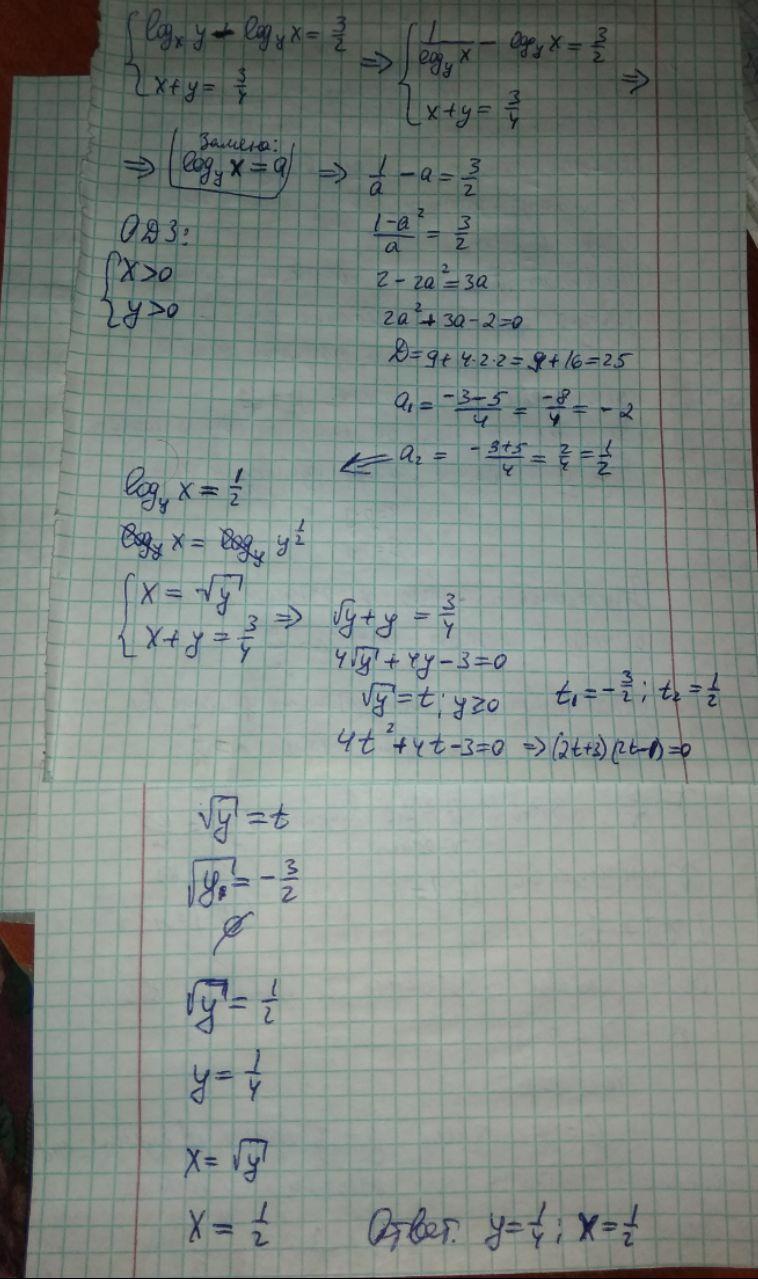 { log_x y - log_y x = 3/2
x + y = 3/4
⇒ { 1/(log_y x) - log_y x = 3/2
x + y = 3/4 ⇒
⇒ | Замена:
log_y x = a | ⇒ 1/a - a = 3/2
ОДЗ:
{ x > 0
y > 0
(1-a²)/a = 3/2
2 - 2a² = 3a
2a² + 3a - 2 = 0
D = 9 + 4·2·2 = 9 + 16 = 25
a₁ = (-3-5)/4 = -8/4 = -2
⇐ a₂ = (-3+5)/4 = 2/4 = 1/2
log_y x = 1/2
log_y x = log_y y^(1/2)
{ x = √y
x + y = 3/4 ⇒ √y + y = 3/4
4√y + 4y - 3 = 0
√y = t; y ≥ 0 t₁ = -3/2; t₂ = 1/2
4t² + 4t - 3 = 0 ⇒ (2t+3)(2t-1) = 0
√y = t
√y = -3/2
∅
√y = 1/2
y = 1/4
x = √y
x = 1/2
Ответ. y = 1/4; x = 1/2